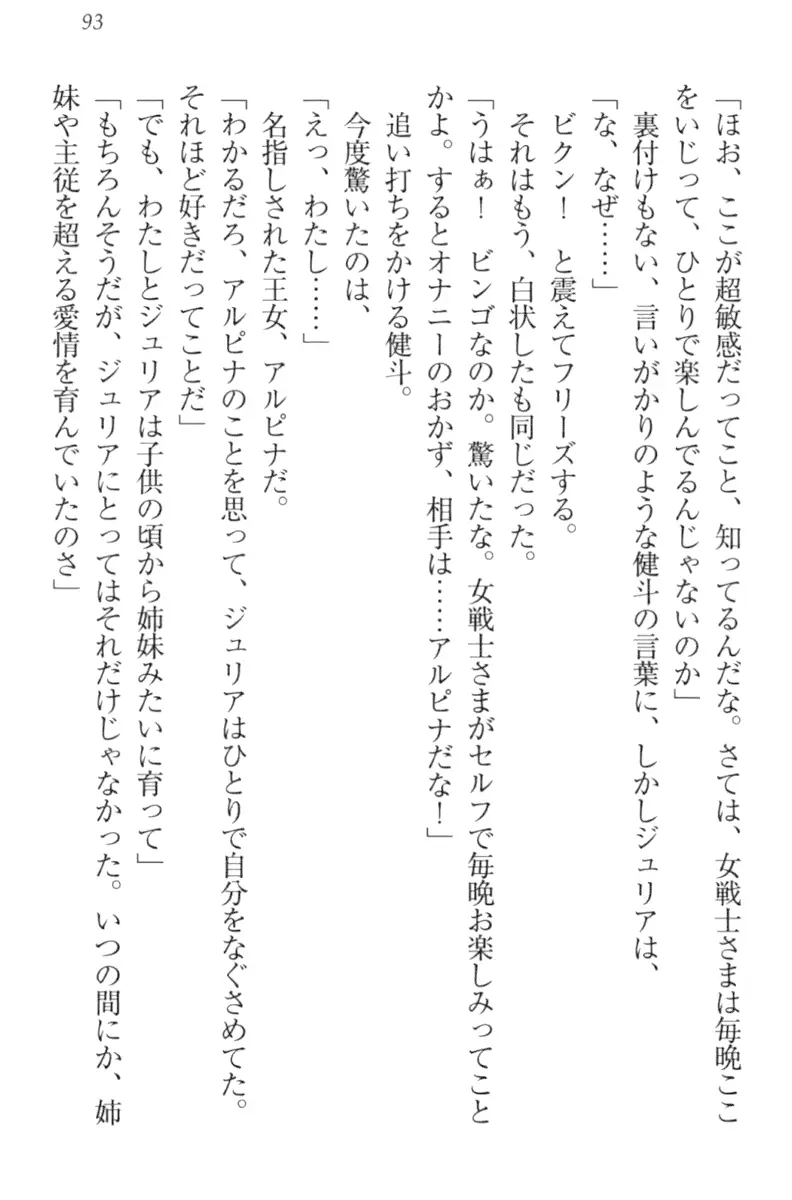 93
「ほお、ここが超敏感だってこと、知ってるんだな。さては、女戦士さまは毎晩ここ
をいじって、ひとりで楽しんでるんじゃないのか」
裏付けもない、言いがかりのような健斗の言葉に、しかしジュリアは、
「な、なぜ……」
ビクン！　と震えてフリーズする。
それはもう、白状したも同じだった。
「うはぁ！　ビンゴなのか。驚いたな。女戦士さまがセルフで毎晩お楽しみってこと
かよ。するとオナニーのおかず、相手は……アルピナだな！」
追い打ちをかける健斗。
今度驚いたのは、
「えっ、わたし……」
名指しされた王女、アルピナだ。
「わかるだろ、アルピナのことを思って、ジュリアはひとりで自分をなぐさめてた。
それほど好きだってことだ」
「でも、わたしとジュリアは子供の頃から姉妹みたいに育って」
「もちろんそうだが、ジュリアにとってはそれだけじゃなかった。いつの間にか、姉
妹や主従を超える愛情を育んでいたのさ」